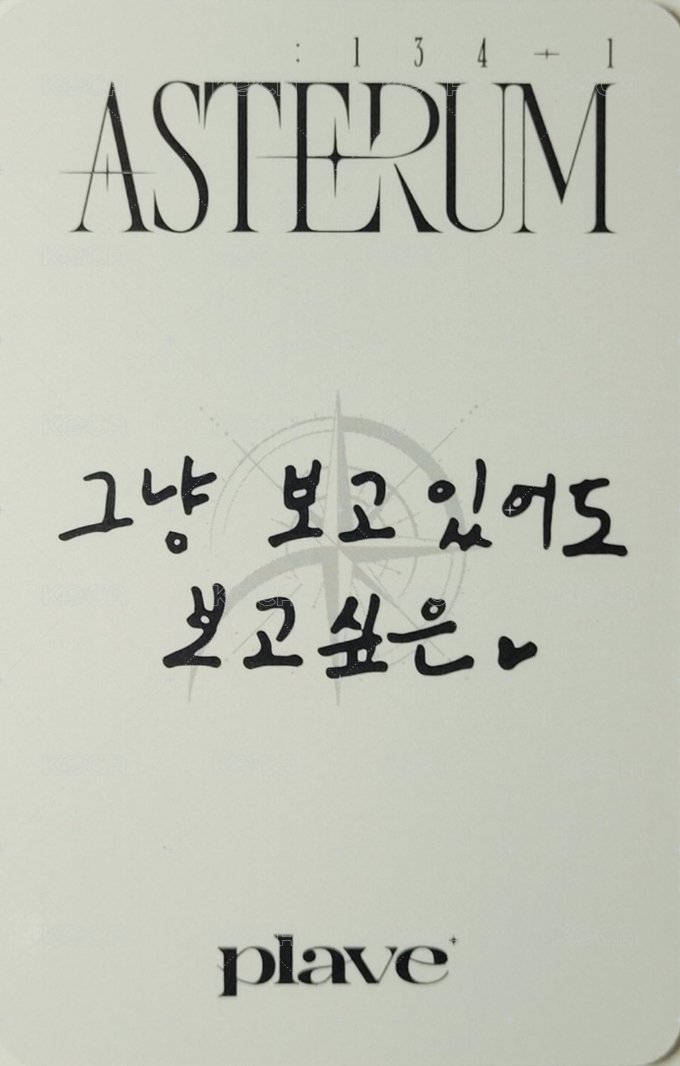 : 1 3 4 - 1
ASTERUM
그냥 보고 있어도
보고싶은♥
plave